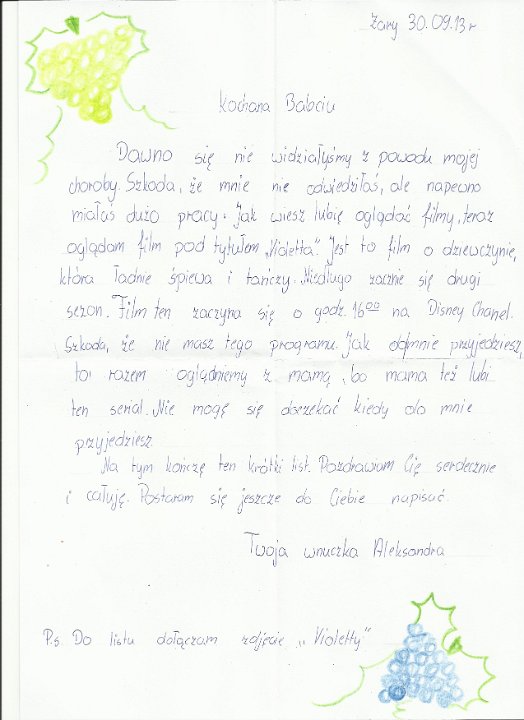 Żary 30.09.13r
Kochana Babciu
Dawno się nie widziałyśmy z powodu mojej
choroby. Szkoda, że mnie nie odwiedziłaś, ale napewno
miałaś dużo pracy. Jak wiesz lubię oglądać filmy, teraz
oglądam film pod tytułem „Violetta". Jest to film o dziewczynie,
która ładnie śpiewa i tańczy. Niedługo zacznie się drugi
sezon. Film ten zaczyna się o godz. 16⁰⁰ na Disney Chanel.
Szkoda, że nie masz tego programu. Jak do mnie przyjedziesz,
to razem oglądniemy z mamą, bo mama też lubi
ten serial. Nie mogę się doczekać kiedy do mnie
przyjedziesz.
Na tym kończę ten krótki list. Pozdrawiam Cię serdecznie
i całuję. Postaram się jeszcze do Ciebie napisać.
Twoja wnuczka Aleksandra
P.s Do listu dołączam zdjęcie „Violetty"